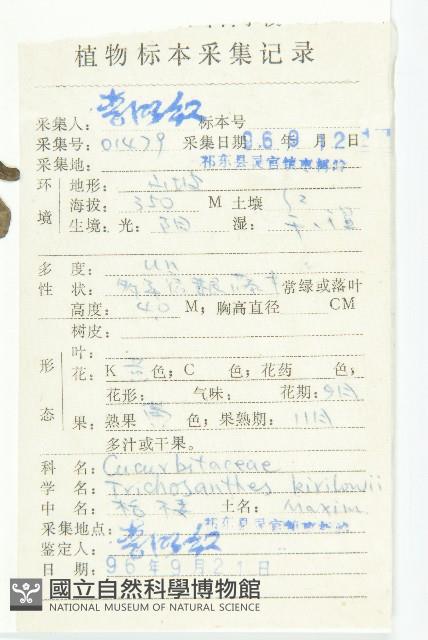 植物标本采集记录
采集人： 标本号
采集号：01479 采集日期 96 年 9 月 12 日
采集地：祁东县灵官镇
环境 地形：山坡
海拔：350 M 土壤 红
生境：光：阳 湿：
多度：un
性状： 常绿或落叶
高度：4.0 M；胸高直径 CM
树皮：
形态 叶：
花：K 色；C 色；花药 色，
花形： 气味： 花期：9月
果：熟果 黄 色；果熟期：11月
多汁或干果。
科名：Cucurbitaceae
学名：Trichosanthes kirilowii
中名：栝楼 土名： Maxim.
采集地点：祁东县灵官镇
鉴定人：
日期 96年9月21日
國立自然科學博物館
NATIONAL MUSEUM OF NATURAL SCIENCE